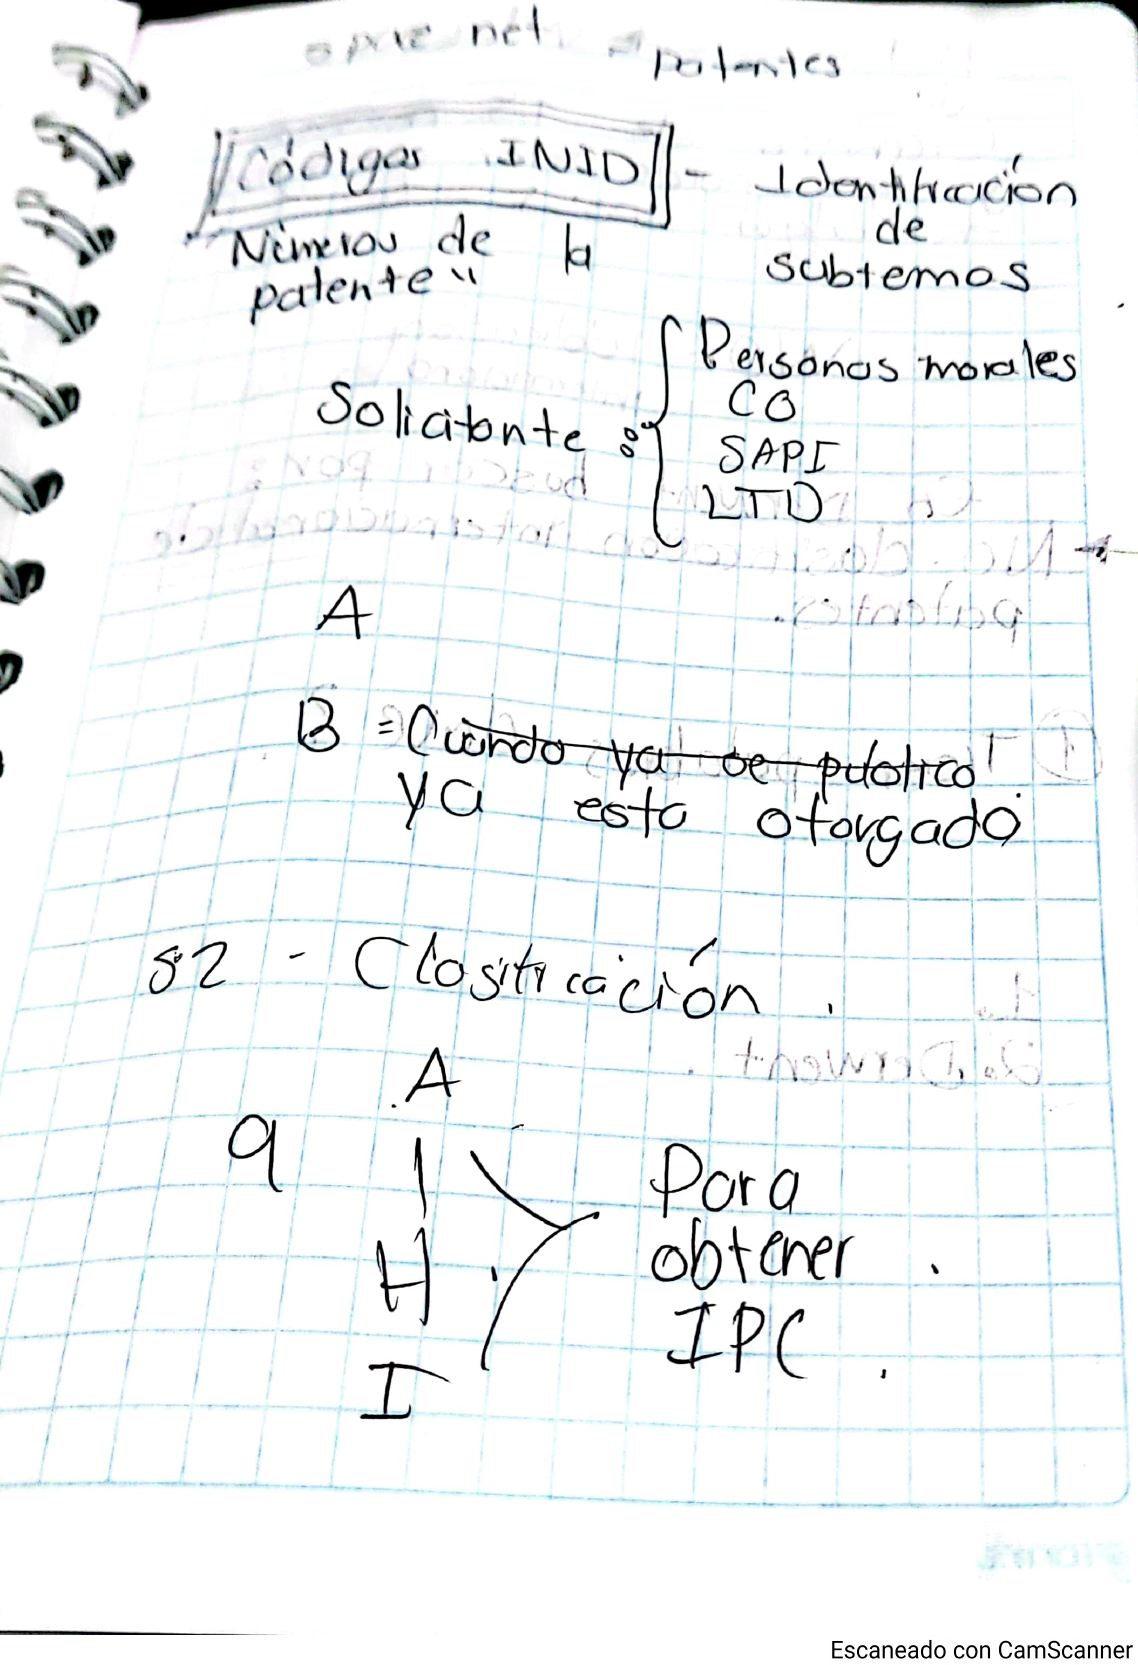 patentes
Códigos INID - Identificación
de
Números de la
subtemas
patente"
Solicitante :
Personas morales
CO
SAPI
LTD
A
B = Cuando ya se publico
ya esta otorgado
52 - Clasificación
A
9
H
I
Para
obtener
IPC
Escaneado con CamScanner